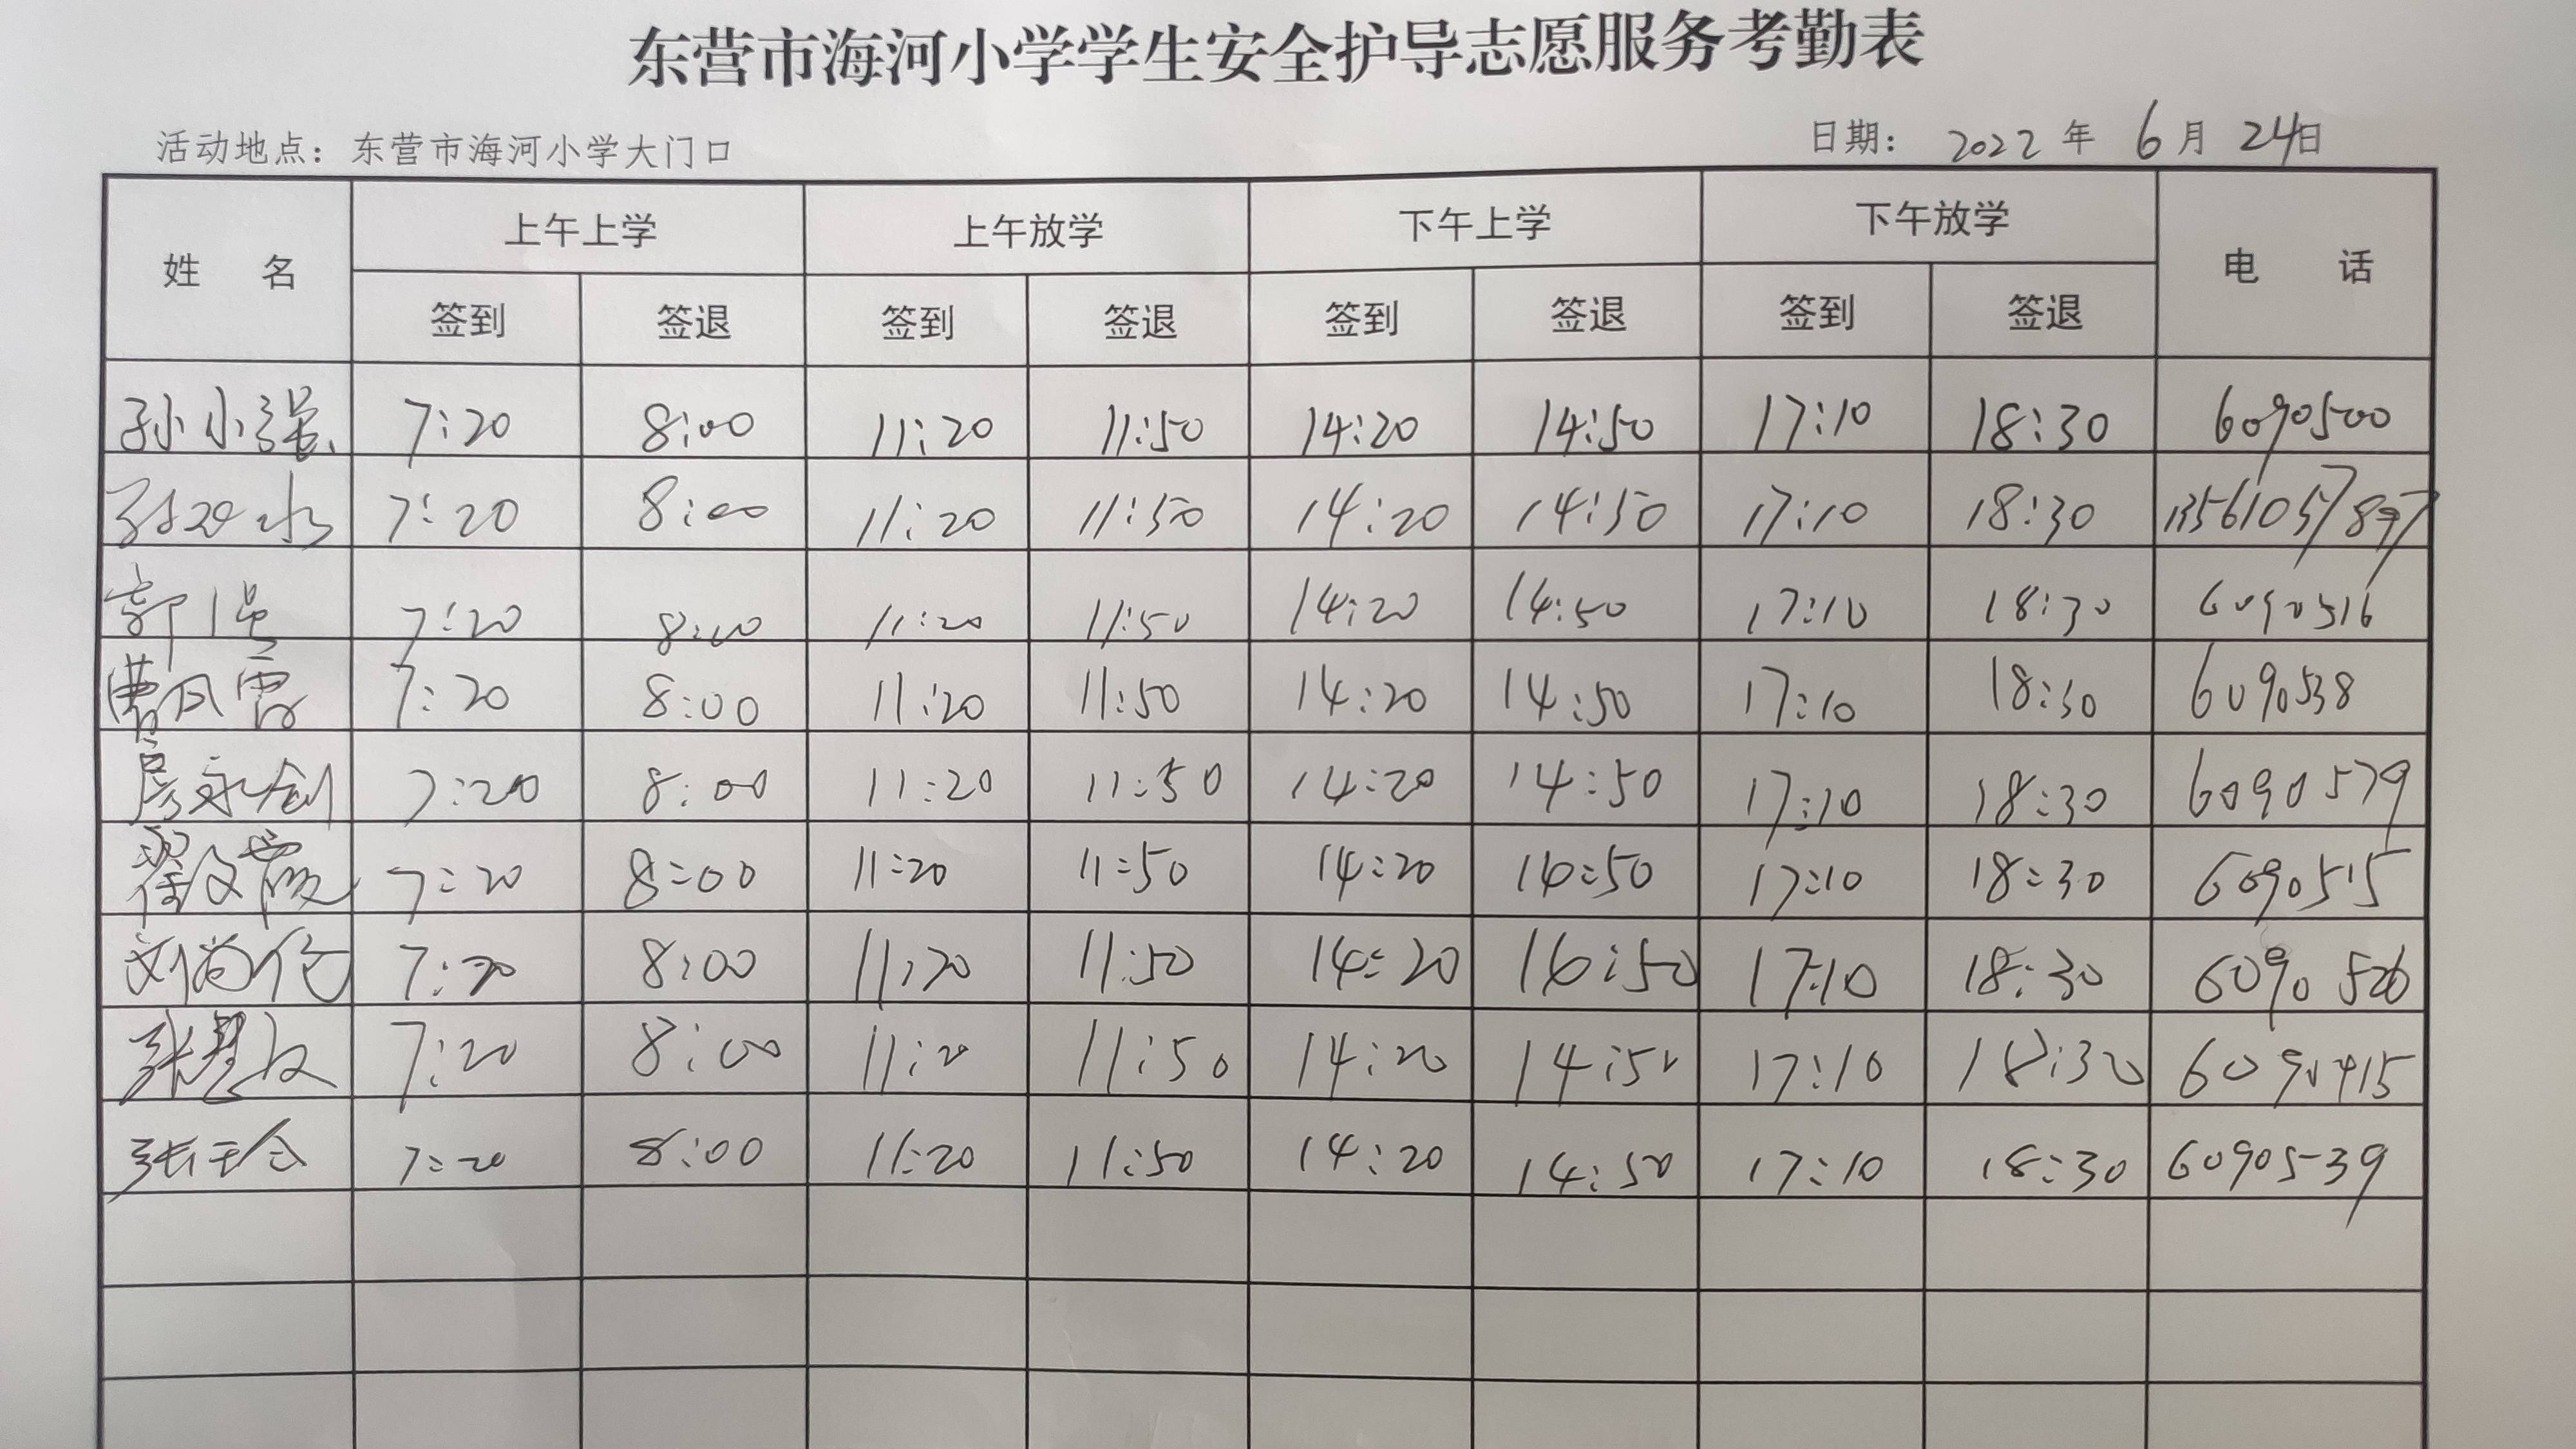 东营市海河小学学生安全护导志愿服务考勤表
活动地点：东营市海河小学大门口 日期： 2022 年 6 月 24日
姓 名 上午上学 上午放学 下午上学 下午放学 电 话
签到 签退 签到 签退 签到 签退 签到 签退
孙小强 7:20 8:00 11:20 11:50 14:20 14:50 17:10 18:30 6090500
7:20 8:00 11:20 11:50 14:20 14:50 17:10 18:30 13561057897
郭强 7:20 8:00 11:20 11:50 14:20 14:50 17:10 18:30 6090516
曹风霞 7:20 8:00 11:20 11:50 14:20 14:50 17:10 18:30 6090538
房永创 7:20 8:00 11:20 11:50 14:20 14:50 17:10 18:30 6090579
翟文霞 7:20 8:00 11:20 11:50 14:20 16:50 17:10 18:30 6090515
刘尚伦 7:20 8:00 11:20 11:50 14:20 16:50 17:10 18:30 6090526
张慧文 7:20 8:00 11:20 11:50 14:20 14:50 17:10 18:30 6090415
7:20 8:00 11:20 11:50 14:20 14:50 17:10 18:30 6090539